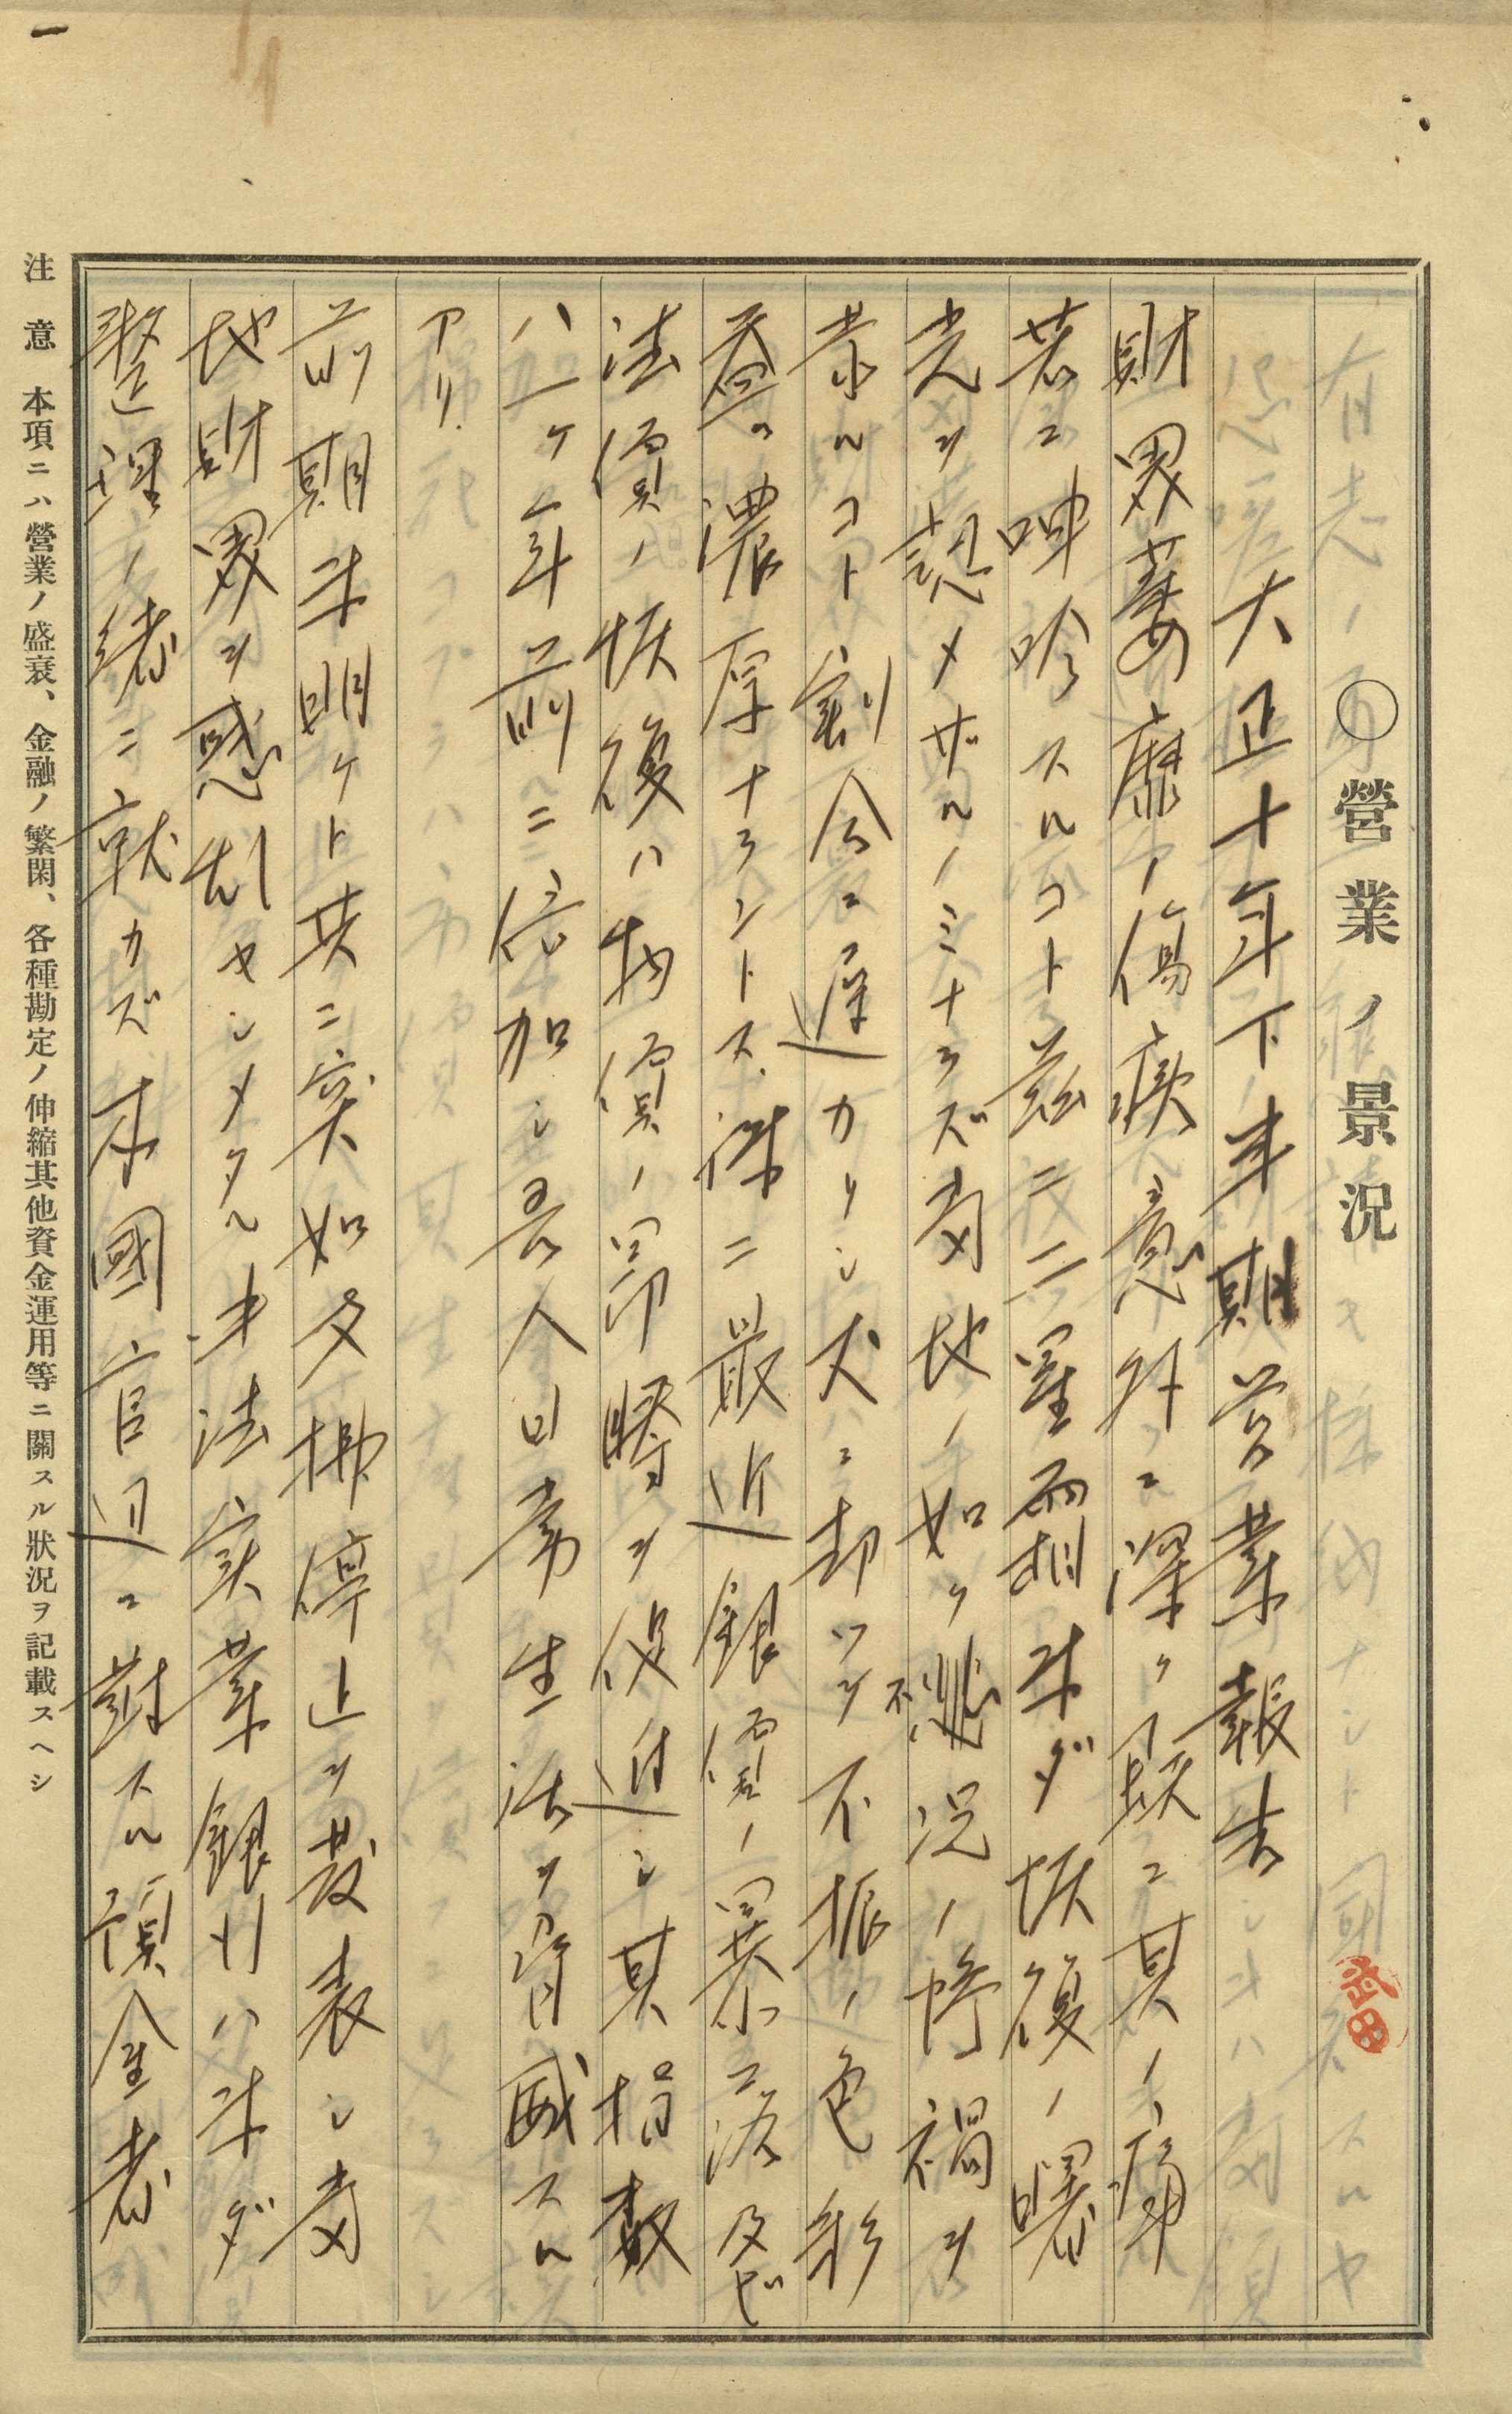 ○營業ノ景況
武田
大正十年下半期営業報告
財界萎靡ノ傷痍意外ニ深ク頗ニ其ノ痛
苦ニ呻吟スルコト茲ニ二星霜未ダ恢復ノ曙
光ヲ認メザルノミナラズ当地ノ如ク不況ノ惨禍ヲ
蒙ルコト割合ニ遅カリシ丈ニ却ツテ不振ノ色彩
益々濃厚ナラントス、殊ニ最近銀價ノ暴落及ビ
法價ノ恢復ハ物價ノ昂騰ヲ促進シ其指数
ハ一ケ年前ニ倍加シ吾人日常生活ヲ脅威スル
アリ.
前期末明ケト共ニ突如支拂停止ヲ發表シ当
地財界ヲ惑乱セシメタル中法実業銀行ハ未ダ
整理ノ緒ニ就カズ本國官辺ニ対スル預金者
注意 本項ニハ營業ノ盛衰、金融ノ繁閑、各種勘定ノ伸縮其他資金運用等ニ關スル狀況ヲ記載スヘシ